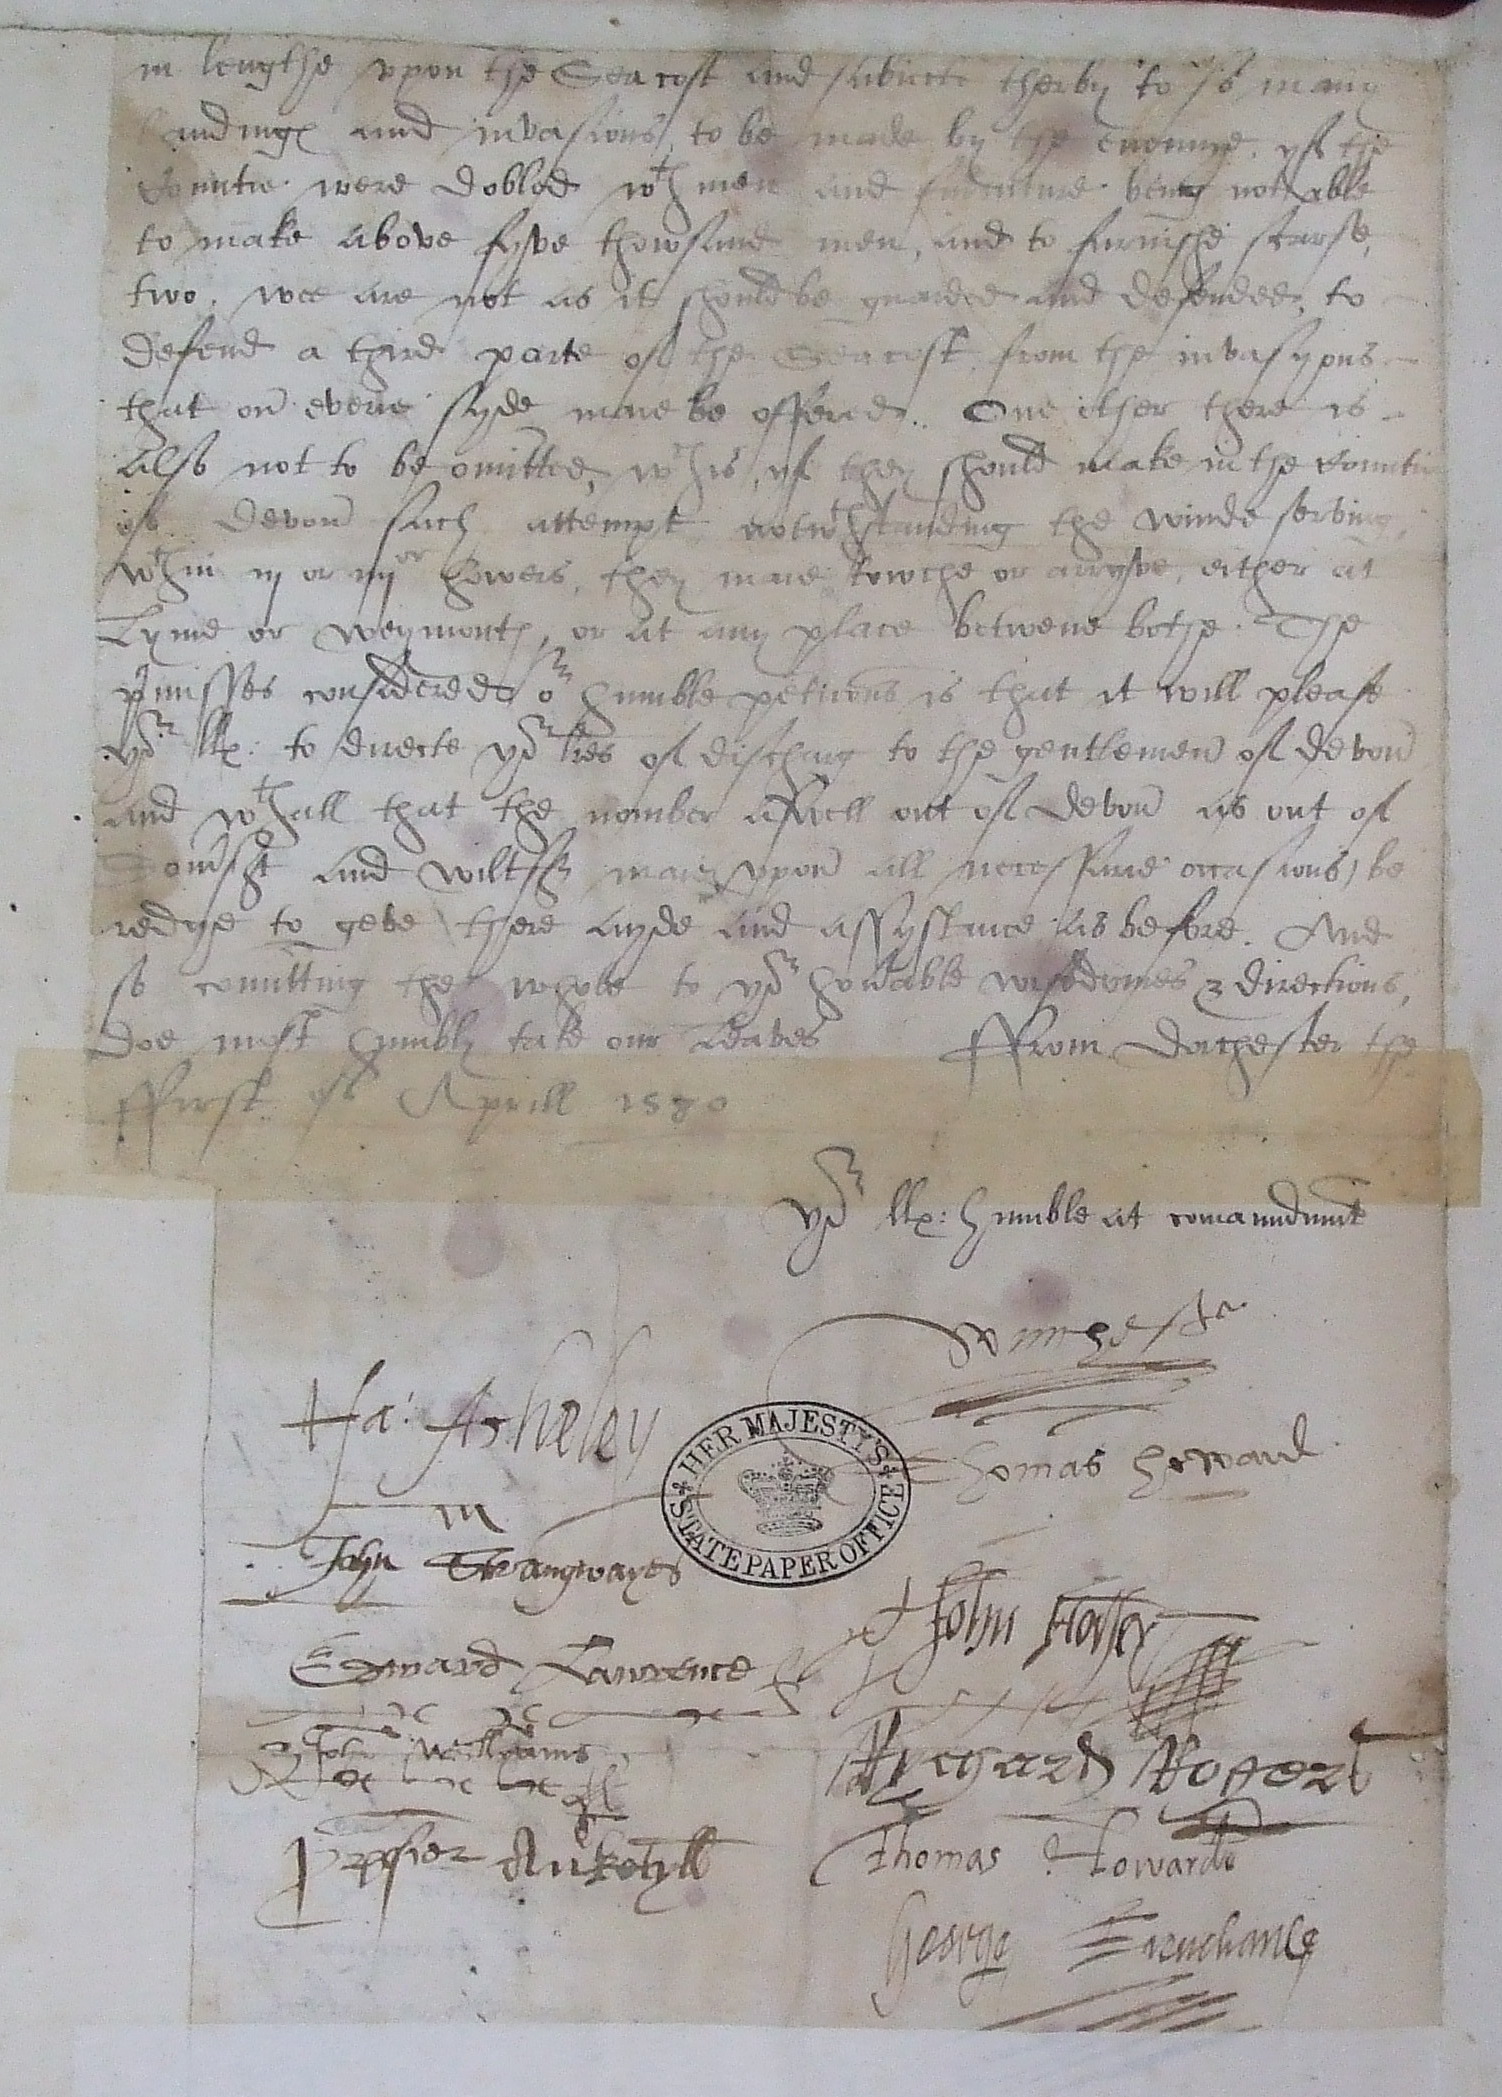 in lengthe vpon the Sea cost and subiecte therby to so many
landinges and invasions, to be made by the enemye, yf the
Countie were dobled wth men and furniture being not able
to make above fyve thowsand men, and to furnishe scarse,
two. wee are not as it should be guarded and defended, to
defend a third parte of the Sea cost from the invasyons
that on everie syde maie be offered. One other there is
also not to be omitted, wch is, yf they should make in the Countie
of Devon such attempt notwthstanding the winde serving,
wthin iij or iiijor howers, they maie towche or arryve, either at
Lyme or Weymouth, or at any place betwene bothe. The
pmisses considered or humble peticons is that it will please
yor llps: to directe yor lres of dischargs to the gentlemen of devon
and wthall that the nomber aswell out of Devon as out of
Somst and Wiltsh maie vpon all necessarie occasions, be
redye to geve there ayde and assystance as before. And
so comitting the whole to yor honable wisdomes & directions,
doe most humbly take our Leaves ffrom Dorchester the
ffirst of Aprill 1580
yor llps: humble at comaundmt
Winchester
Ha: Asheley
Thomas howard
HER MAJESTY'S STATE PAPER OFFICE
John Strangwayes
John Horsey
Edward Lawrence
John Williams
Rychard Rogers
Thomas Howarde
Crystofer Anketyll
George Trenchard